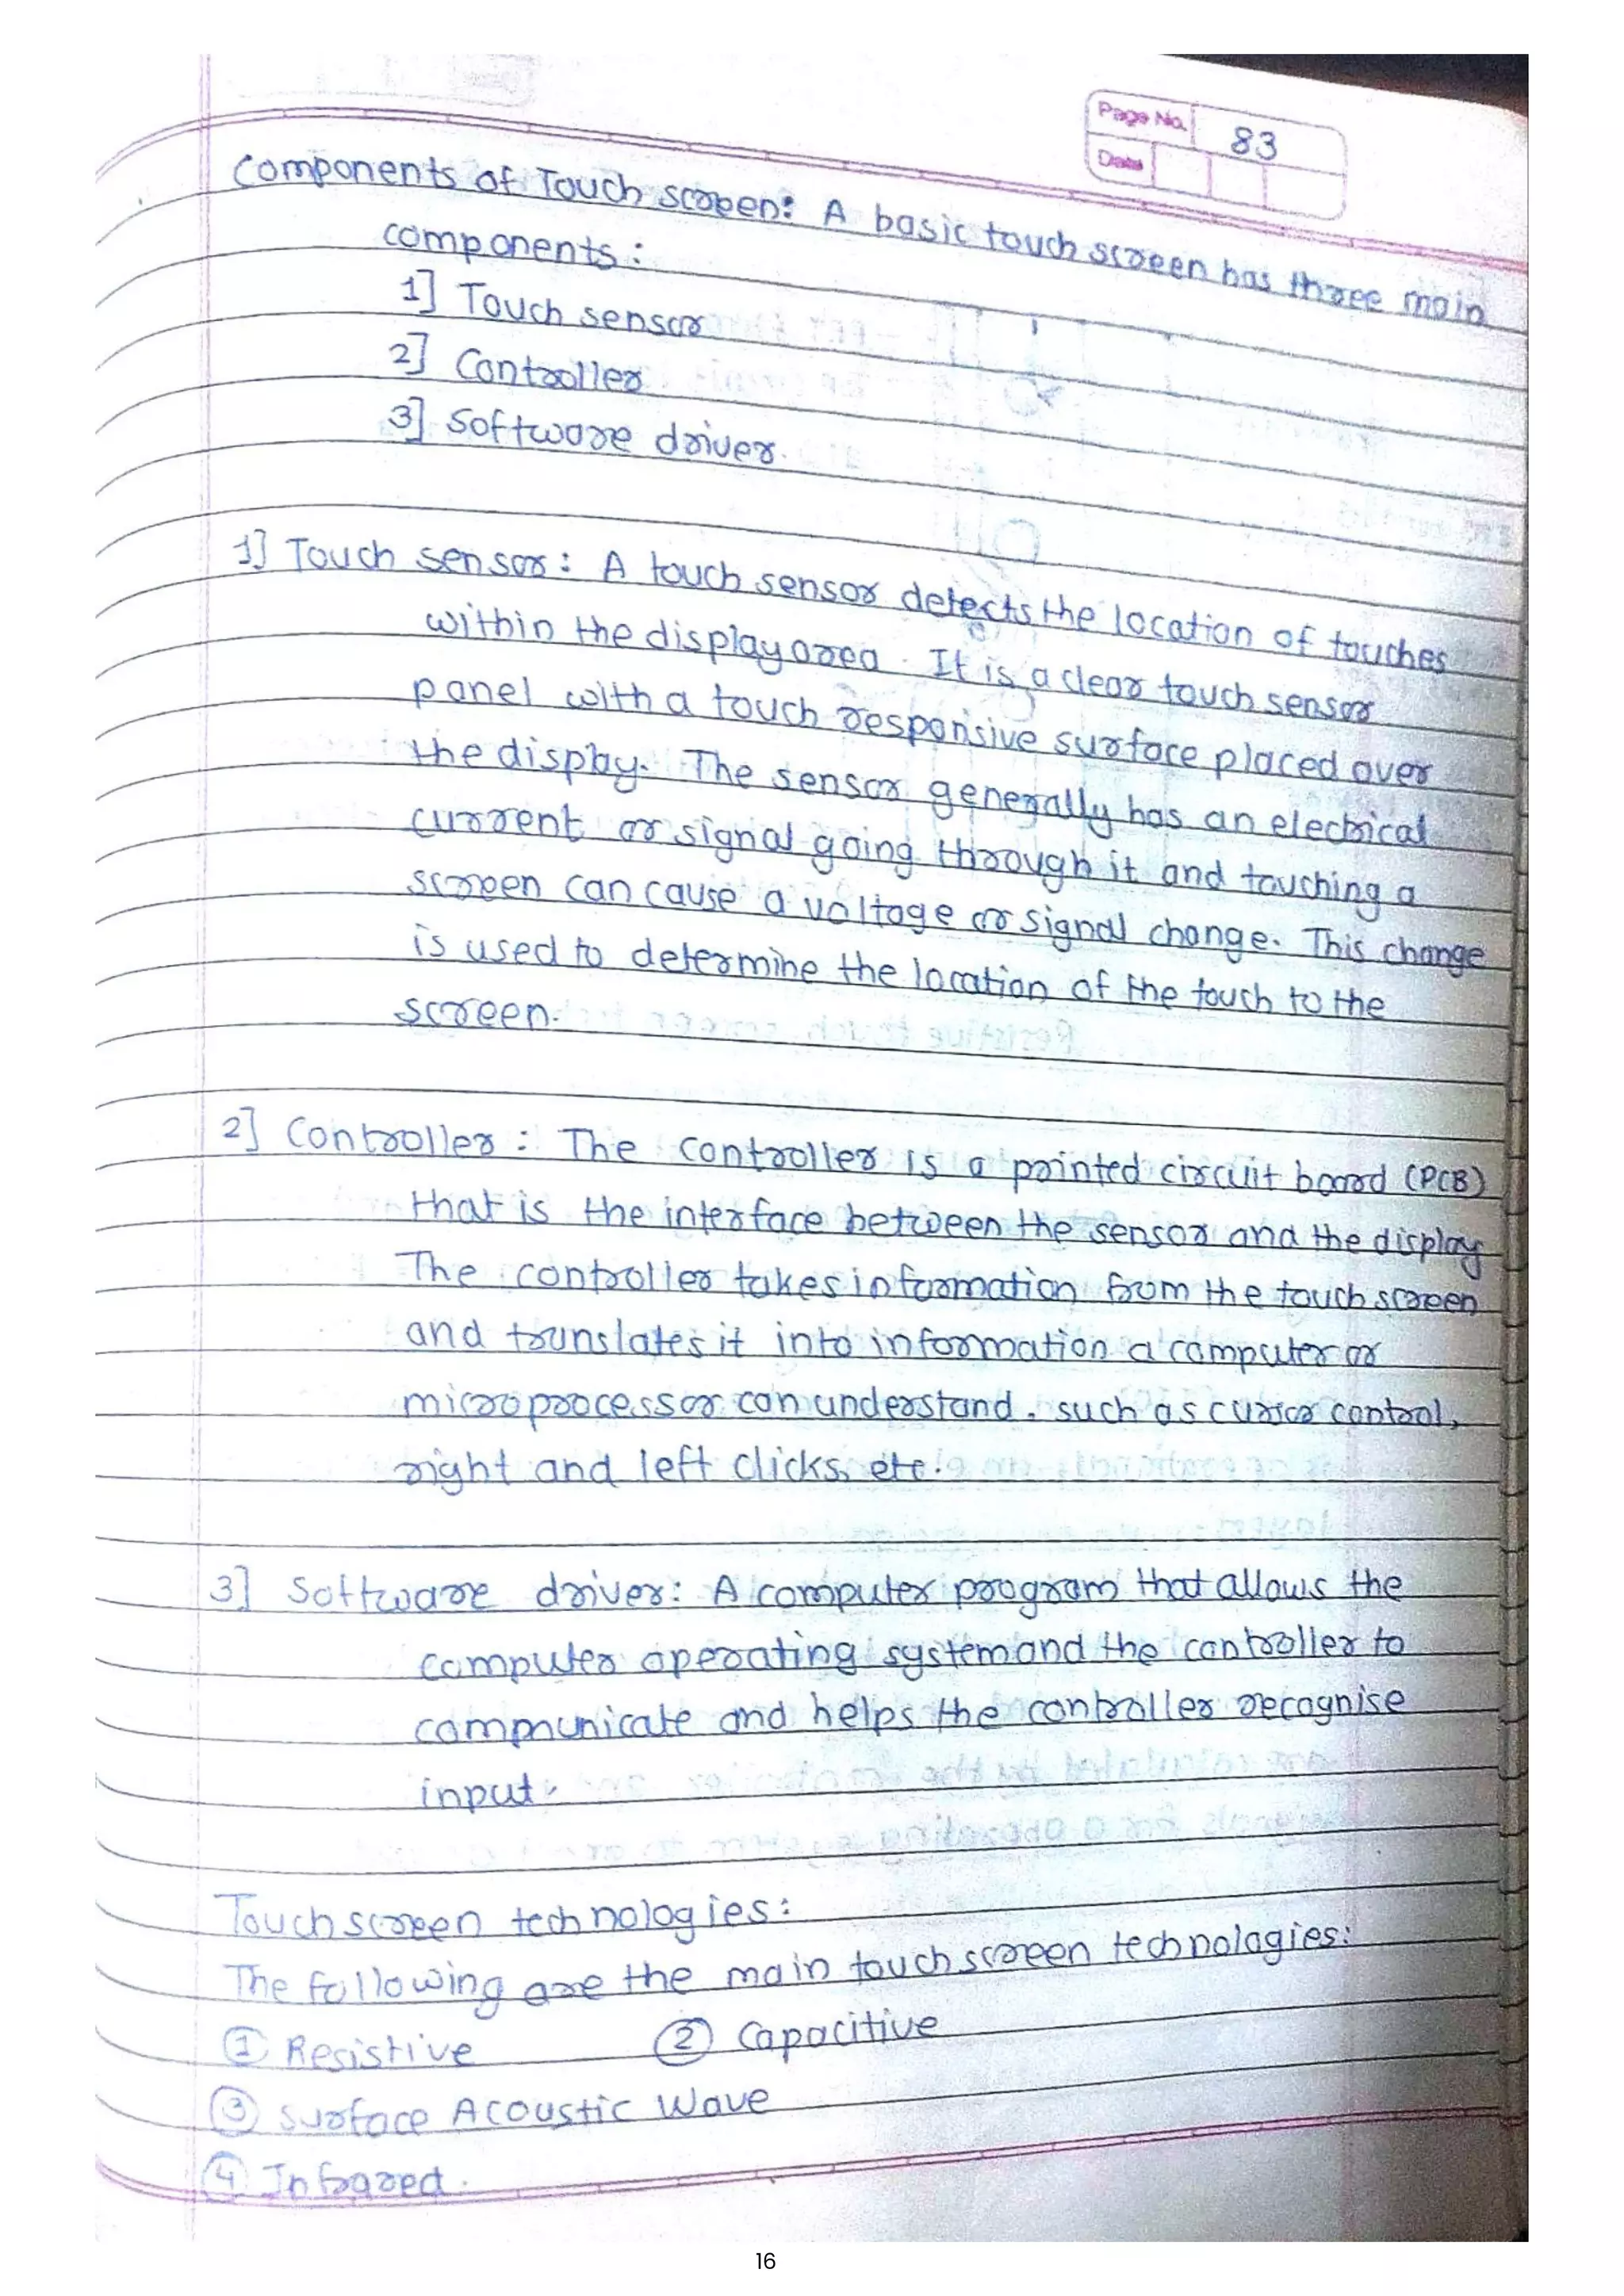 Page No. 83
Date
Components of Touch screen: A basic touch screen has three main
components:
1] Touch sensor
2] Controller
3] Software driver.
1] Touch sensor: A touch sensor detects the location of touches
within the display area. It is a clear touch sensor
panel with a touch responsive surface placed over
the display. The sensor generally has an electrical
current or signal going through it and touching a
screen can cause a voltage or signal change. This change
is used to determine the location of the touch to the
screen.
2] Controller: The controller is a printed circuit board (PCB)
that is the interface between the sensor and the display
The controller takes information from the touch screen
and translates it into information a computer or
microprocessor can understand. such as cursor control,
right and left clicks, etc.
3] Software driver: A computer program that allows the
computer operating system and the controller to
communicate and helps the controller recognise
input.
Touch screen technologies:
The following are the main touch screen technologies:
① Resistive ② Capacitive
③ Surface Acoustic Wave
④ Infrared.
16